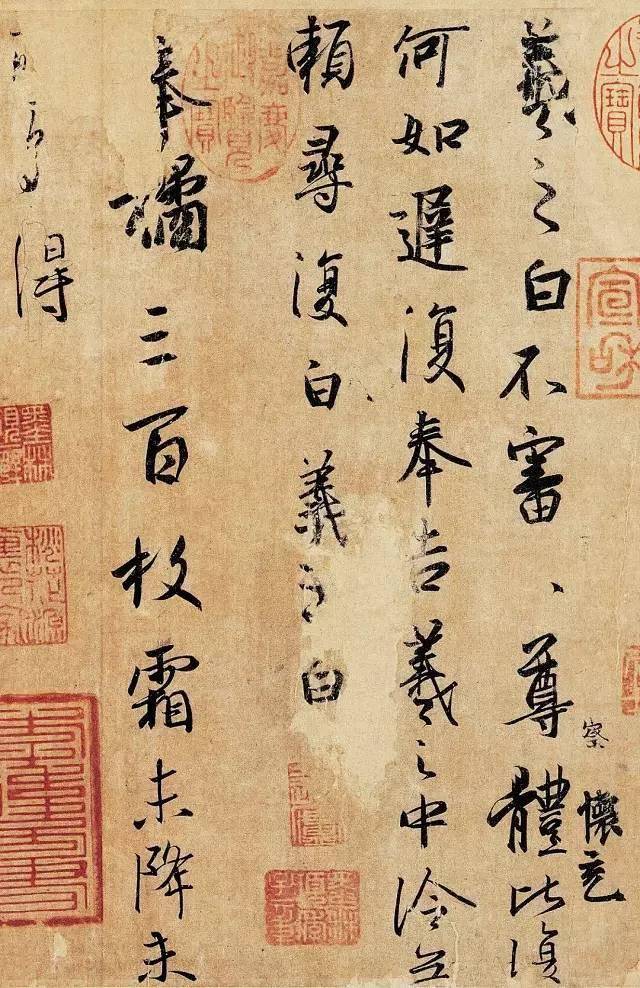 羲之白不審、尊體比復
察 懷充
何如遲復奉告羲之中冷無
賴尋復白羲之白
奉橘三百枚霜未降未
可多得
之寶
宣和
嘉慶御覽之寶